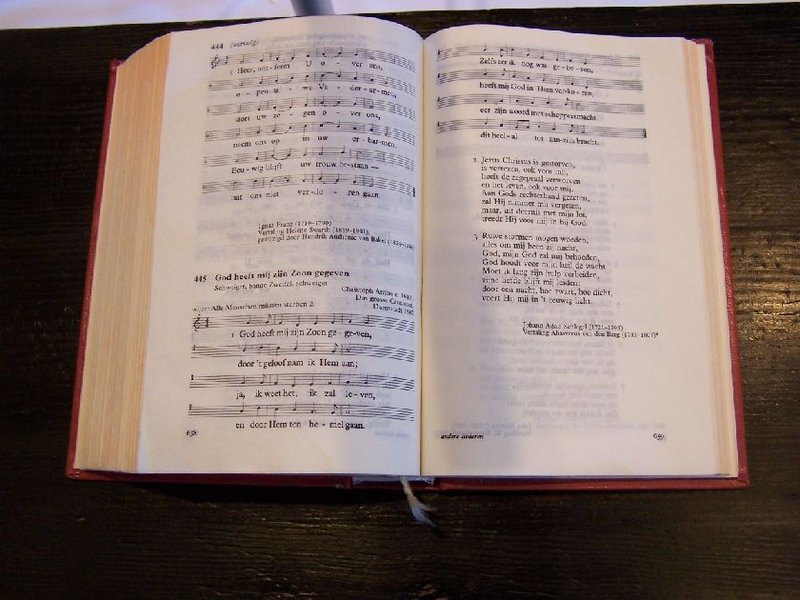 444 (vervolg)
3 Heer, ont-ferm U o - ver ons,
o - pen u - we Va - der-ar-men,
stort uw ze - gen o - ver ons,
neem ons op in uw er - bar-men.
Eeu-wig blijft uw trouw be-staan —
laat ons niet ver-lo - ren gaan.
Ignaz Franz (1719-1790)
Vertaling Hélène Swarth (1859-1941),
gewijzigd door Hendrik Anthonie van Bakel
445 God heeft mij zijn Zoon gegeven
Schweiger, bange Zweifel, schweiget
Christoph Anton
Das grosse Cantional,
Darmstadt 1687
wijze: Alle Menschen müssen sterben 2
1 God heeft mij zijn Zoon ge-ge-ven,
door 't geloof nam ik Hem aan;
ja, ik weet het, ik zal le-ven,
en door Hem ten he-mel gaan.
638
Zelfs eer ik nog was ge-bo-ren,
heeft mij God in Hem ver-ko-ren,
eer zijn woord met scheppersmacht
dit heel-al tot aan-zijn bracht.
2 Jezus Christus is gestorven,
is verrezen, ook voor mij,
heeft de zegepraal verworven
en het leven, ook voor mij.
Aan Gods rechterhand gezeten,
zal Hij nimmer mij vergeten,
maar, uit deernis met mijn lot,
treedt Hij voor mij in bij God.
3 Ruwe stormen mogen woeden,
alles om mij heen zij nacht,
God, mijn God zal mij behoeden,
God houdt voor mijn heil de wacht.
Moet ik lang zijn hulp verbeiden,
zijne liefde blijft mij leiden:
door een nacht, hoe zwart, hoe dicht,
voert Hij mij in 't eeuwig licht.
Johann Adolf Schlegel (1721-1793)
Vertaling Ahasverus van den Berg (1733-1807)
andere liederen
639